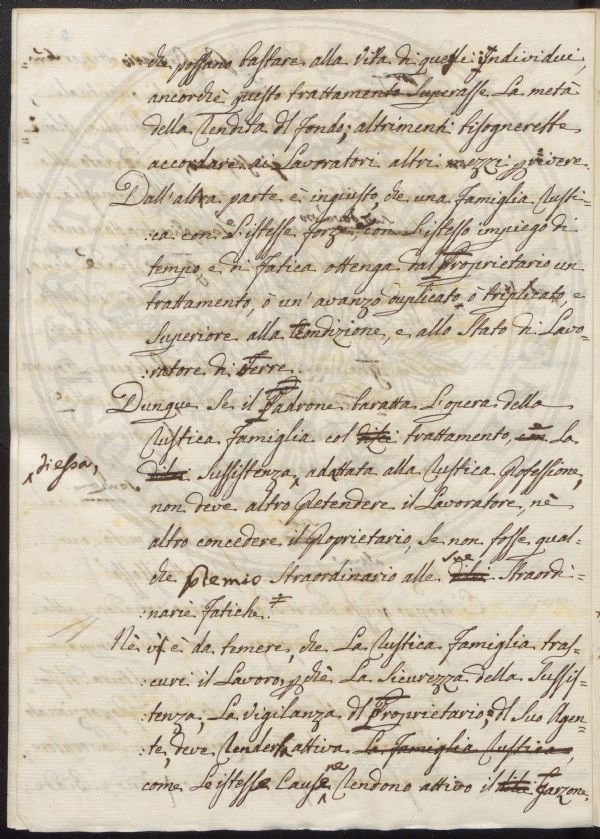 che possano bastare alla vita di questi Individui,
ancorchè questo trattamento superasse la metà
della Rendita dl fondo; altrimenti bisognerebbe
accordare ai Lavoratori altri mezzi p vivere.
Dall'altra parte è ingiusto, che una Famiglia Rusti-
:ca con l'istesse forze, con l'istesso impiego di
tempo, e di fatica ottenga dal Proprietario un
trattamento, ò un'avanzo duplicato, ò triplicato, e
superiore alla Condizione, e allo Stato di Lavo-
:ratore di Terre.
Dunque se il Padrone baratta l'opera della
Rustica Famiglia col di lei trattamento, e la
di lei sussistenza, adattata alla Rustica Professione,
d'essa,
non deve altro pretendere il Lavoratore, nè
altro concedere il Proprietario, se non fosse qual-
che premio straordinario alle sue straordi-
:narie fatiche.
Nè vi è da temere, che la Rustica Famiglia tras-
curi il Lavoro, pchè la sicurezza della sussis-
tenza, la vigilanza dl Proprietario, e dl suo Agen-
te, deve renderla attiva la Famiglia Rustica,
come l'istesse cause ne rendono attivo il di lei Garzone.